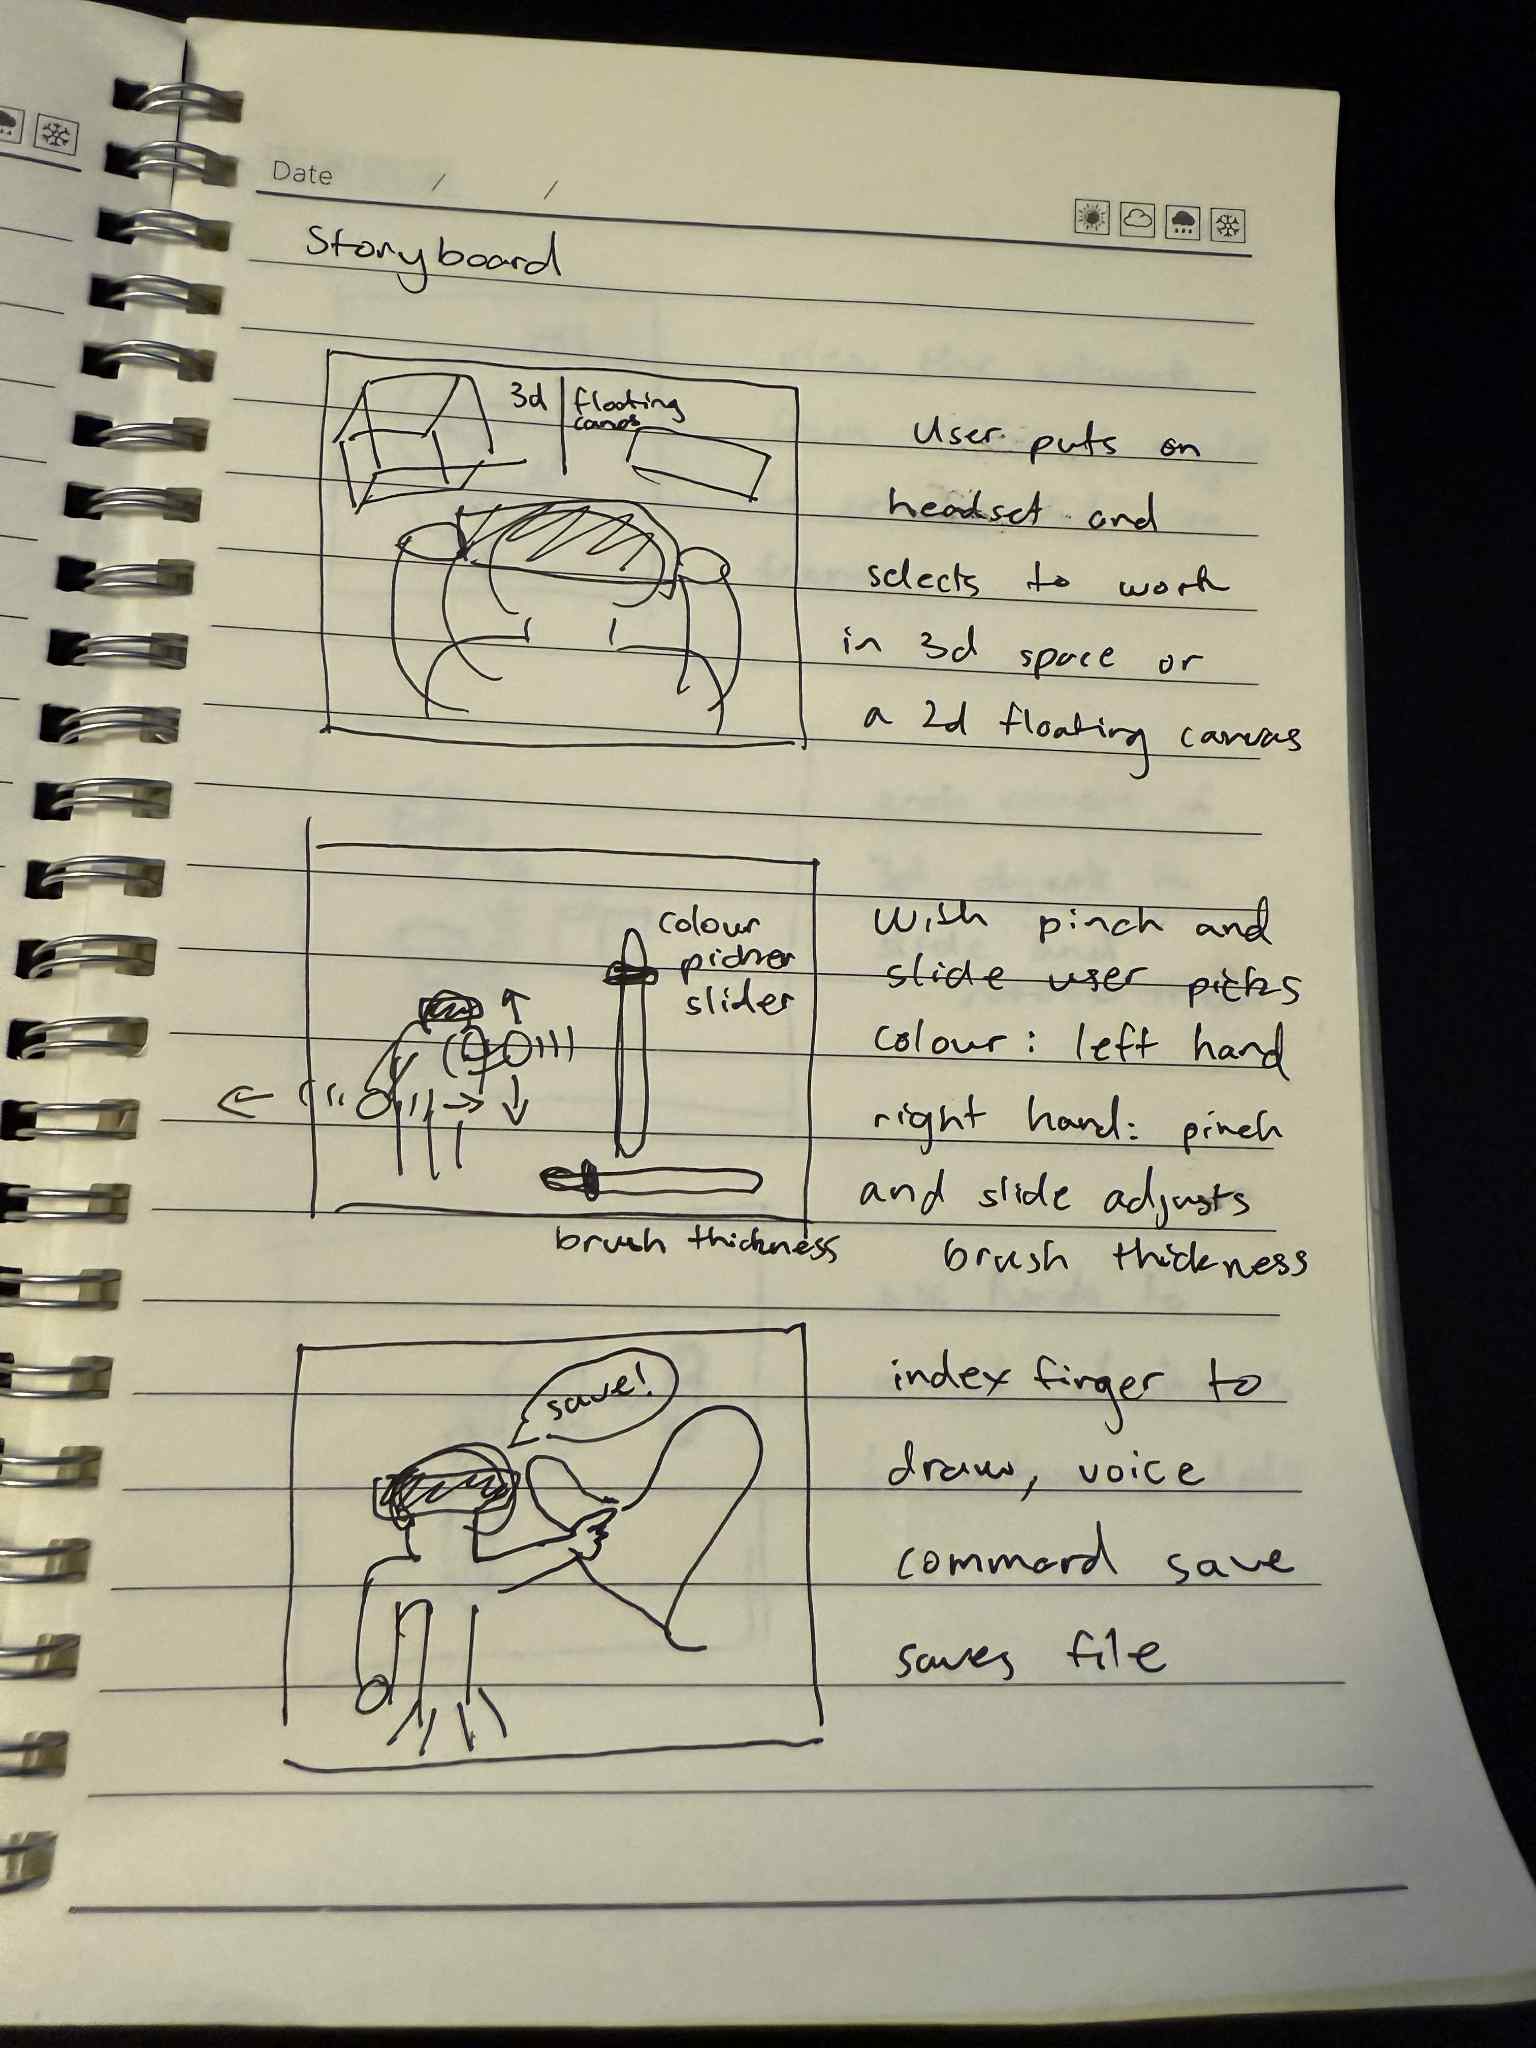 Date / /
Storyboard
3d | floating
canas
User puts on
headset and
selects to work
in 3d space or
a 2d floating canvas
colour
picker
slider
brush thickness
With pinch and
slide user picks
colour: left hand
right hand: pinch
and slide adjusts
brush thickness
save!
index finger to
draw, voice
command save
saves file